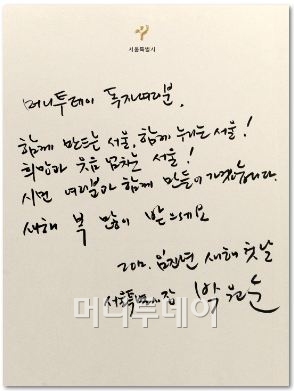 서울특별시
머니투데이 독자여러분,
함께 만드는 서울, 함께 누리는 서울!
희망과 웃음 넘치는 서울!
시민 여러분과 함께 만들어 가겠습니다.
새해 복 많이 받으세요
2012. 임진년 새해 첫날
서울특별시장 박원순
머니투데이